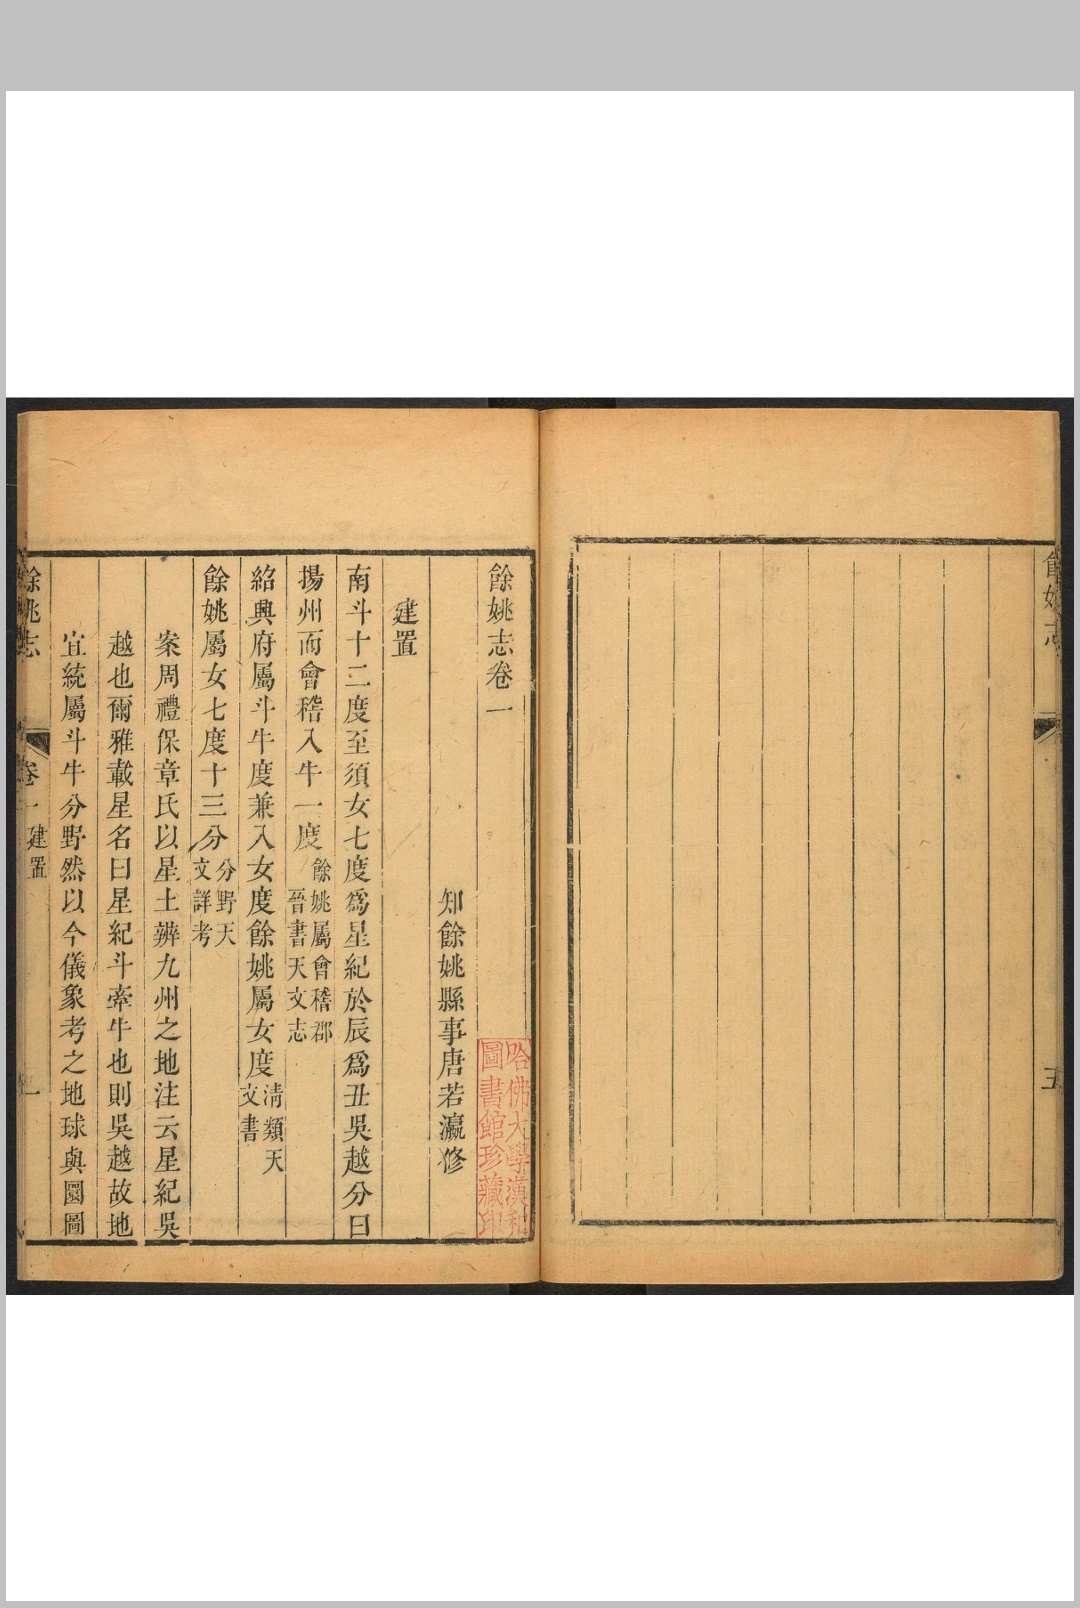 餘姚志
五
餘姚志卷一
知餘姚縣事唐若瀛修
建置
南斗十二度至須女七度爲星紀於辰爲丑吳越分曰
揚州而會稽入牛一度餘姚屬會稽郡晉書天文志
紹興府屬斗牛度兼入女度餘姚屬女度淸類天文書
餘姚屬女七度十三分分野天文詳考
案周禮保章氏以星土辨九州之地注云星紀吳
越也爾雅載星名曰星紀斗牽牛也則吳越故地
宜統屬斗牛分野然以今儀象考之地球與圜圖
餘姚志
卷一
建置
一
哈佛大學漢和
圖書館珍藏印